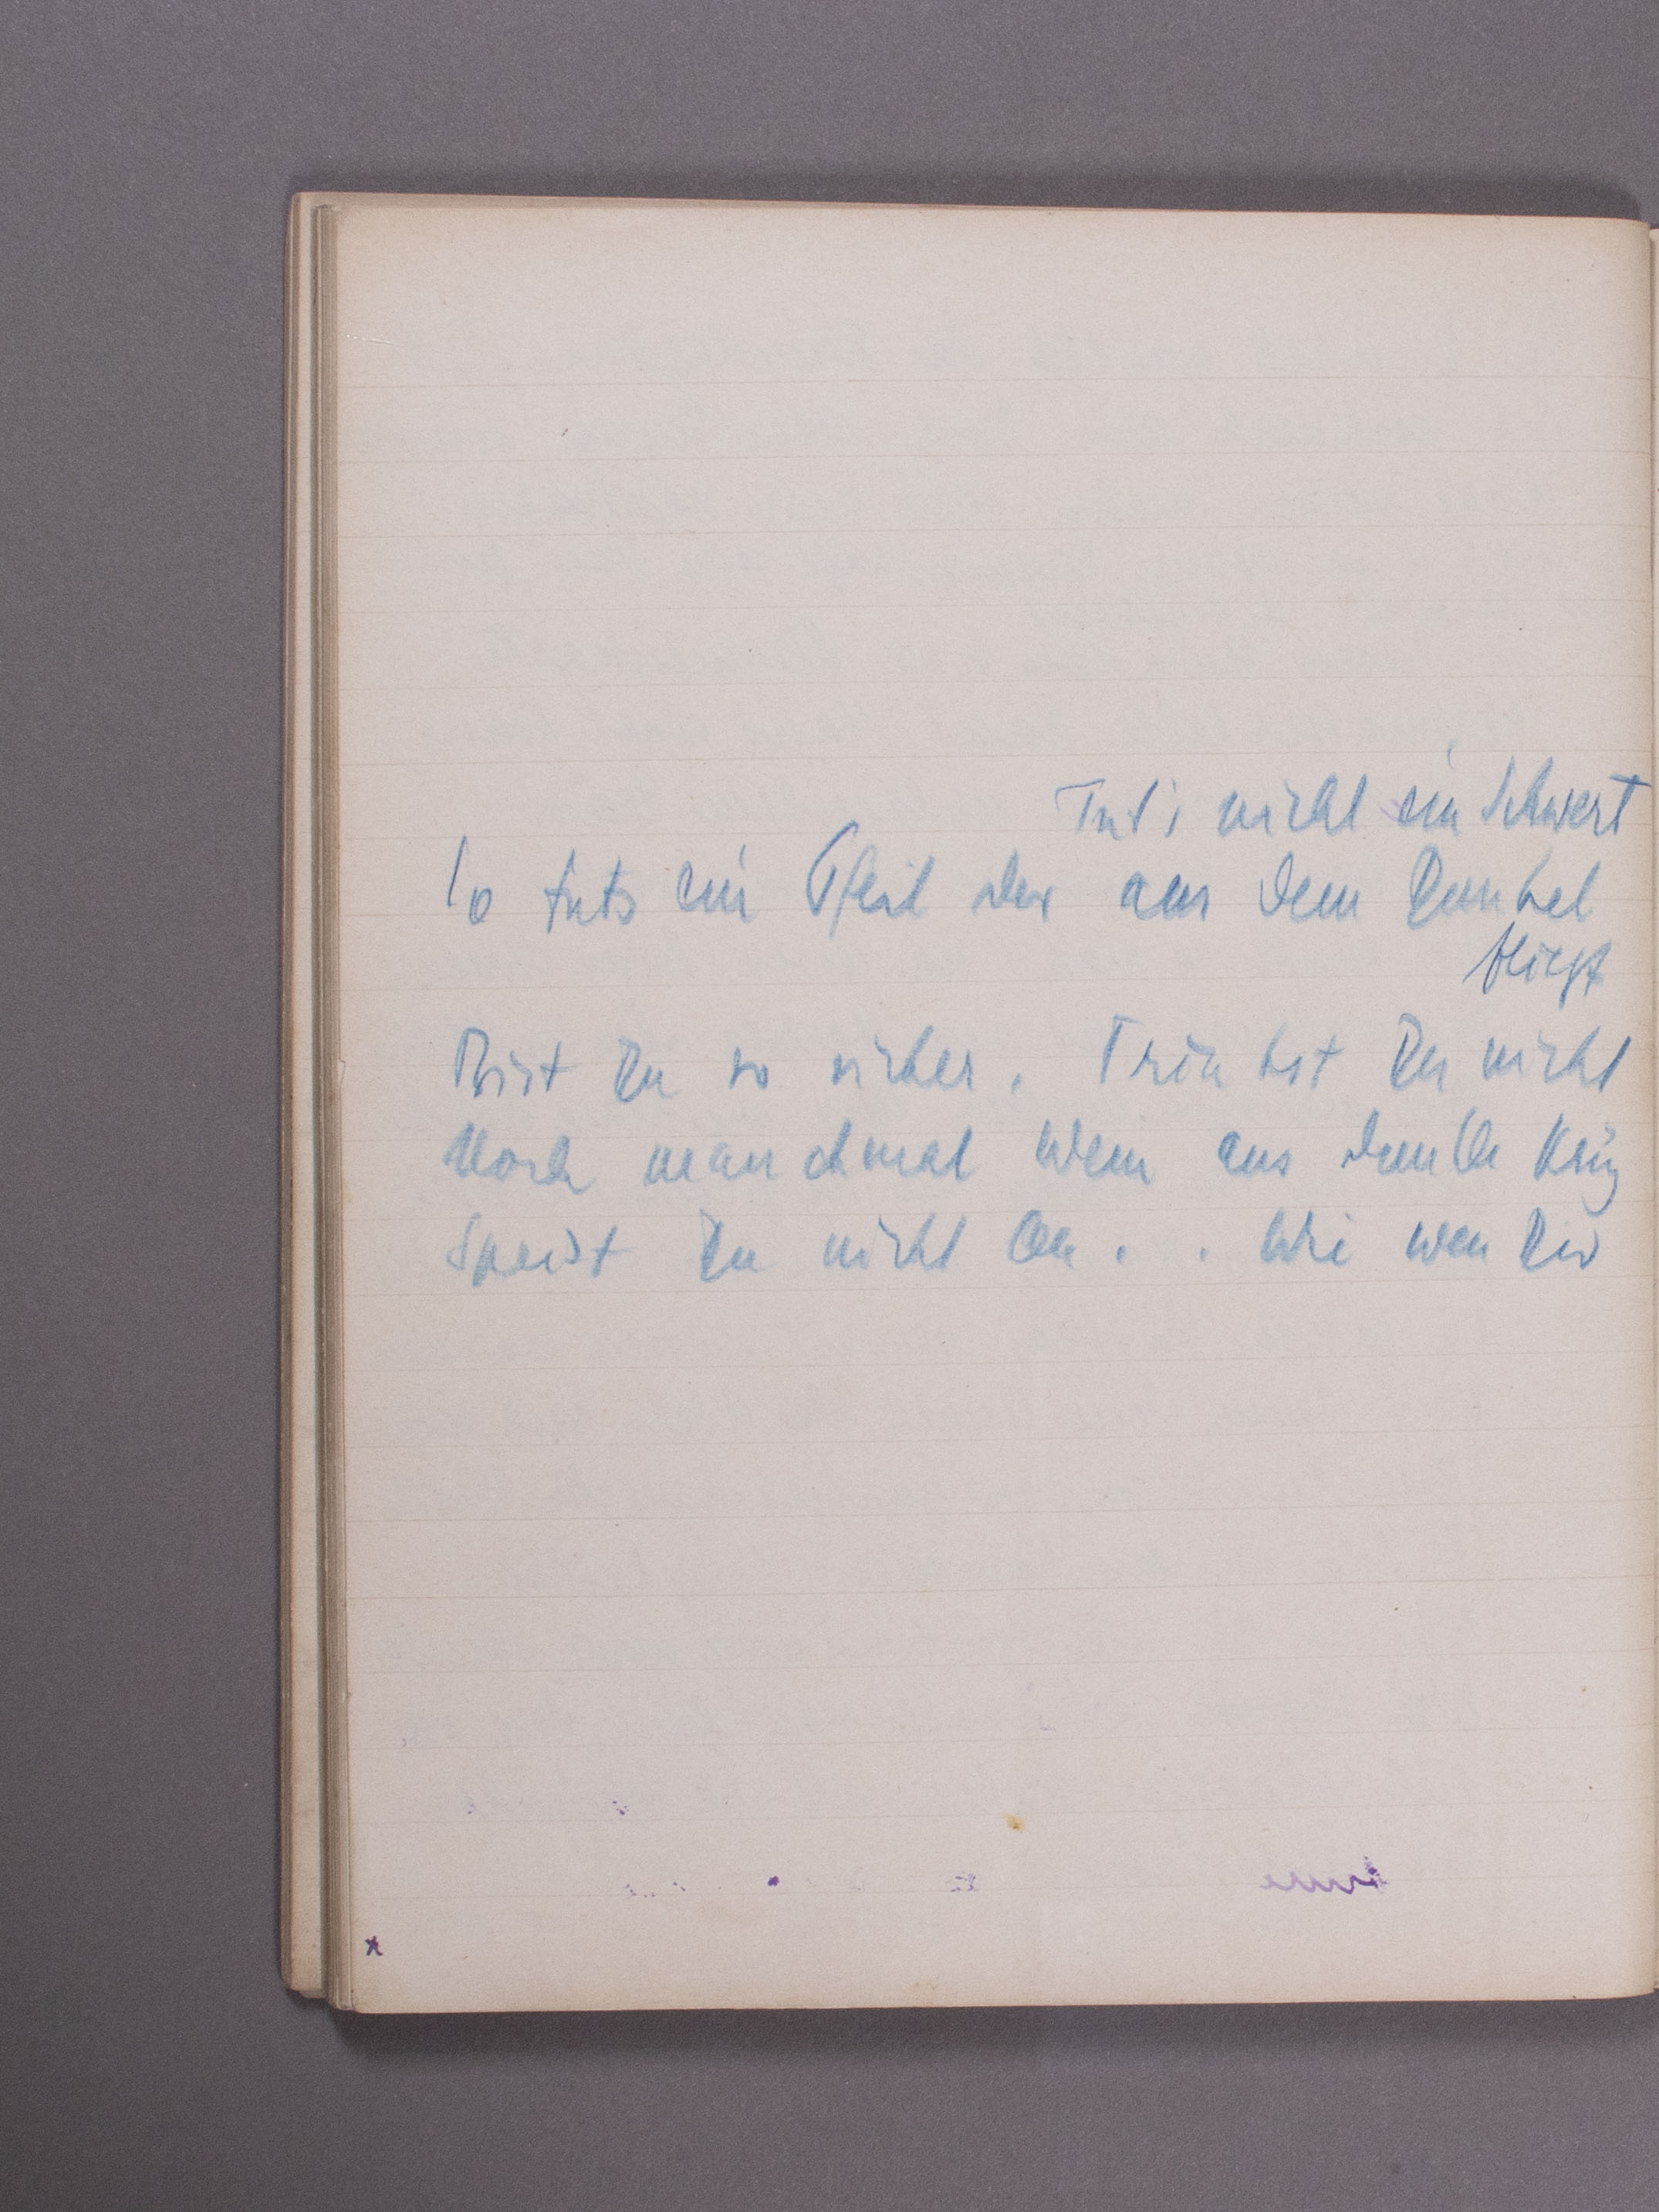 Tut's nicht ein Schwert
So tuts ein Pfeil der aus dem Dunkel
fliegt
Bist Du so sicher. Trinkst Du nicht
Noch manchmal Wein aus dunklem Krug
Speist Du nicht . . Wie wenn Du